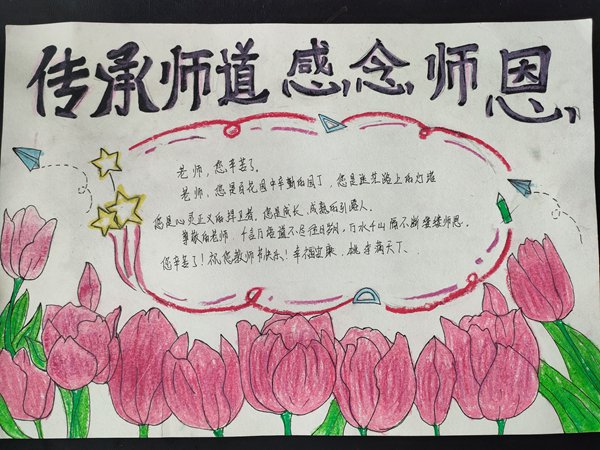 传承师道 感念师恩
老师，您辛苦了。
老师，您是百花园中辛勤的园丁，您是迷茫路上的灯塔
您是心灵正义的捍卫者，您是成长、成熟的引路人。
敬爱的老师，千言万语道不尽往日别，万水千山隔不断缕缕师恩。
您辛苦了！祝您教师节快乐！幸福安康、桃李满天下、